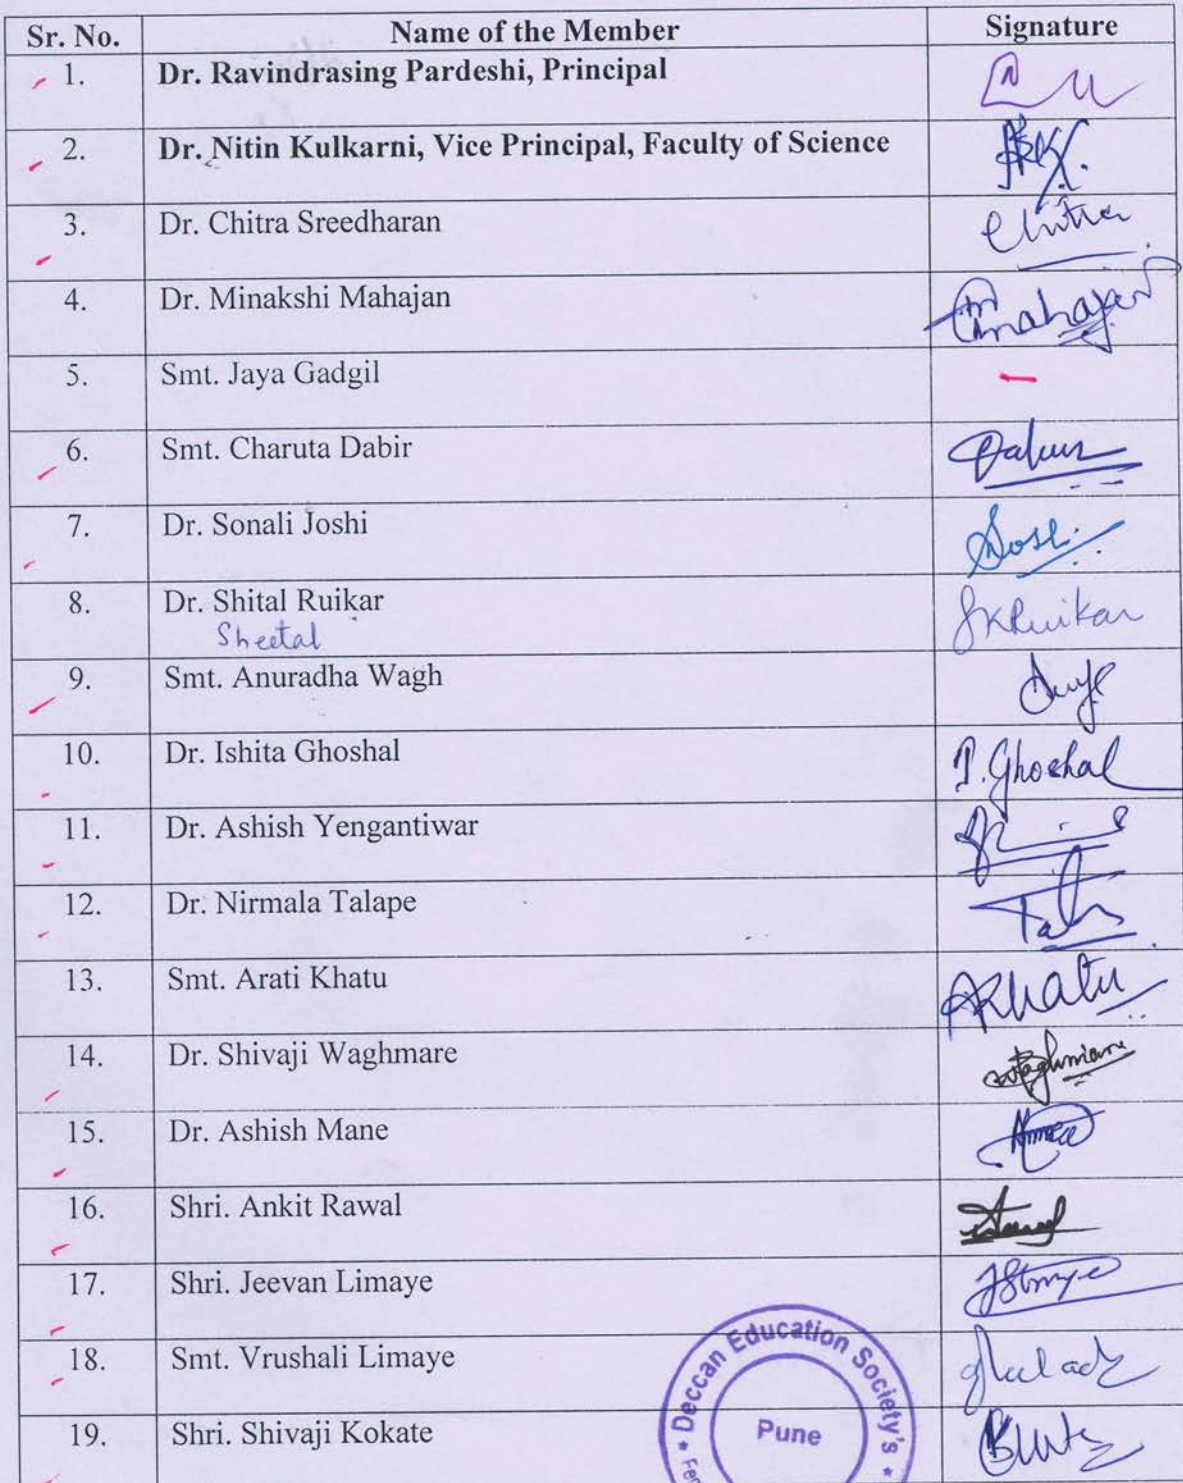 Sr. No. Name of the Member Signature
1. Dr. Ravindrasing Pardeshi, Principal
2. Dr. Nitin Kulkarni, Vice Principal, Faculty of Science
3. Dr. Chitra Sreedharan Chitra
4. Dr. Minakshi Mahajan Mahajan
5. Smt. Jaya Gadgil –
6. Smt. Charuta Dabir
7. Dr. Sonali Joshi
8. Dr. Shital Ruikar SKRuikar
Sheetal
9. Smt. Anuradha Wagh
10. Dr. Ishita Ghoshal I. Ghoshal
11. Dr. Ashish Yengantiwar
12. Dr. Nirmala Talape
13. Smt. Arati Khatu AKhatu
14. Dr. Shivaji Waghmare
15. Dr. Ashish Mane
16. Shri. Ankit Rawal
17. Shri. Jeevan Limaye
18. Smt. Vrushali Limaye
19. Shri. Shivaji Kokate
* Deccan Education Society's *
Pune